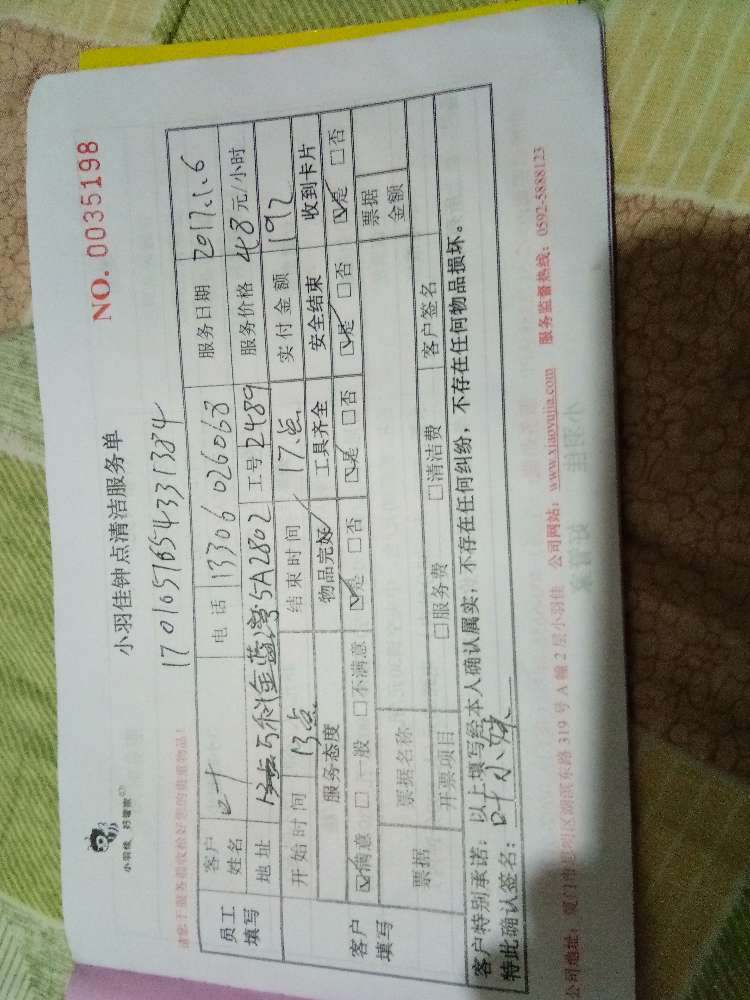 小羽佳 好管家
小羽佳钟点清洁服务单
NO. 0035198
请您于服务前收拾好您的贵重物品!
员工填写
客户姓名 叶 电话 13306026068 服务日期 2017.1.6
地址 万科金蓝湾5A2802 工号 2489 服务价格 48元/小时
开始时间 13点 结束时间 17点 实付金额 192
客户填写
服务态度 物品完好 工具齐全 安全结束 收到卡片
☑满意 □一般 □不满意 ☑是 □否 ☑是 □否 ☑是 □否 ☑是 □否
票据 票据名称 票据金额
开票项目 □服务费 □清洁费 客户签名
客户特别承诺:以上填写经本人确认属实,不存在任何纠纷,不存在任何物品损坏。
特此确认签名:叶小妹
公司地址:厦门市思明区湖滨东路319号A幢2层小羽佳 公司网站:www.xiaoyujia.com 服务监督热线:0592-5888123